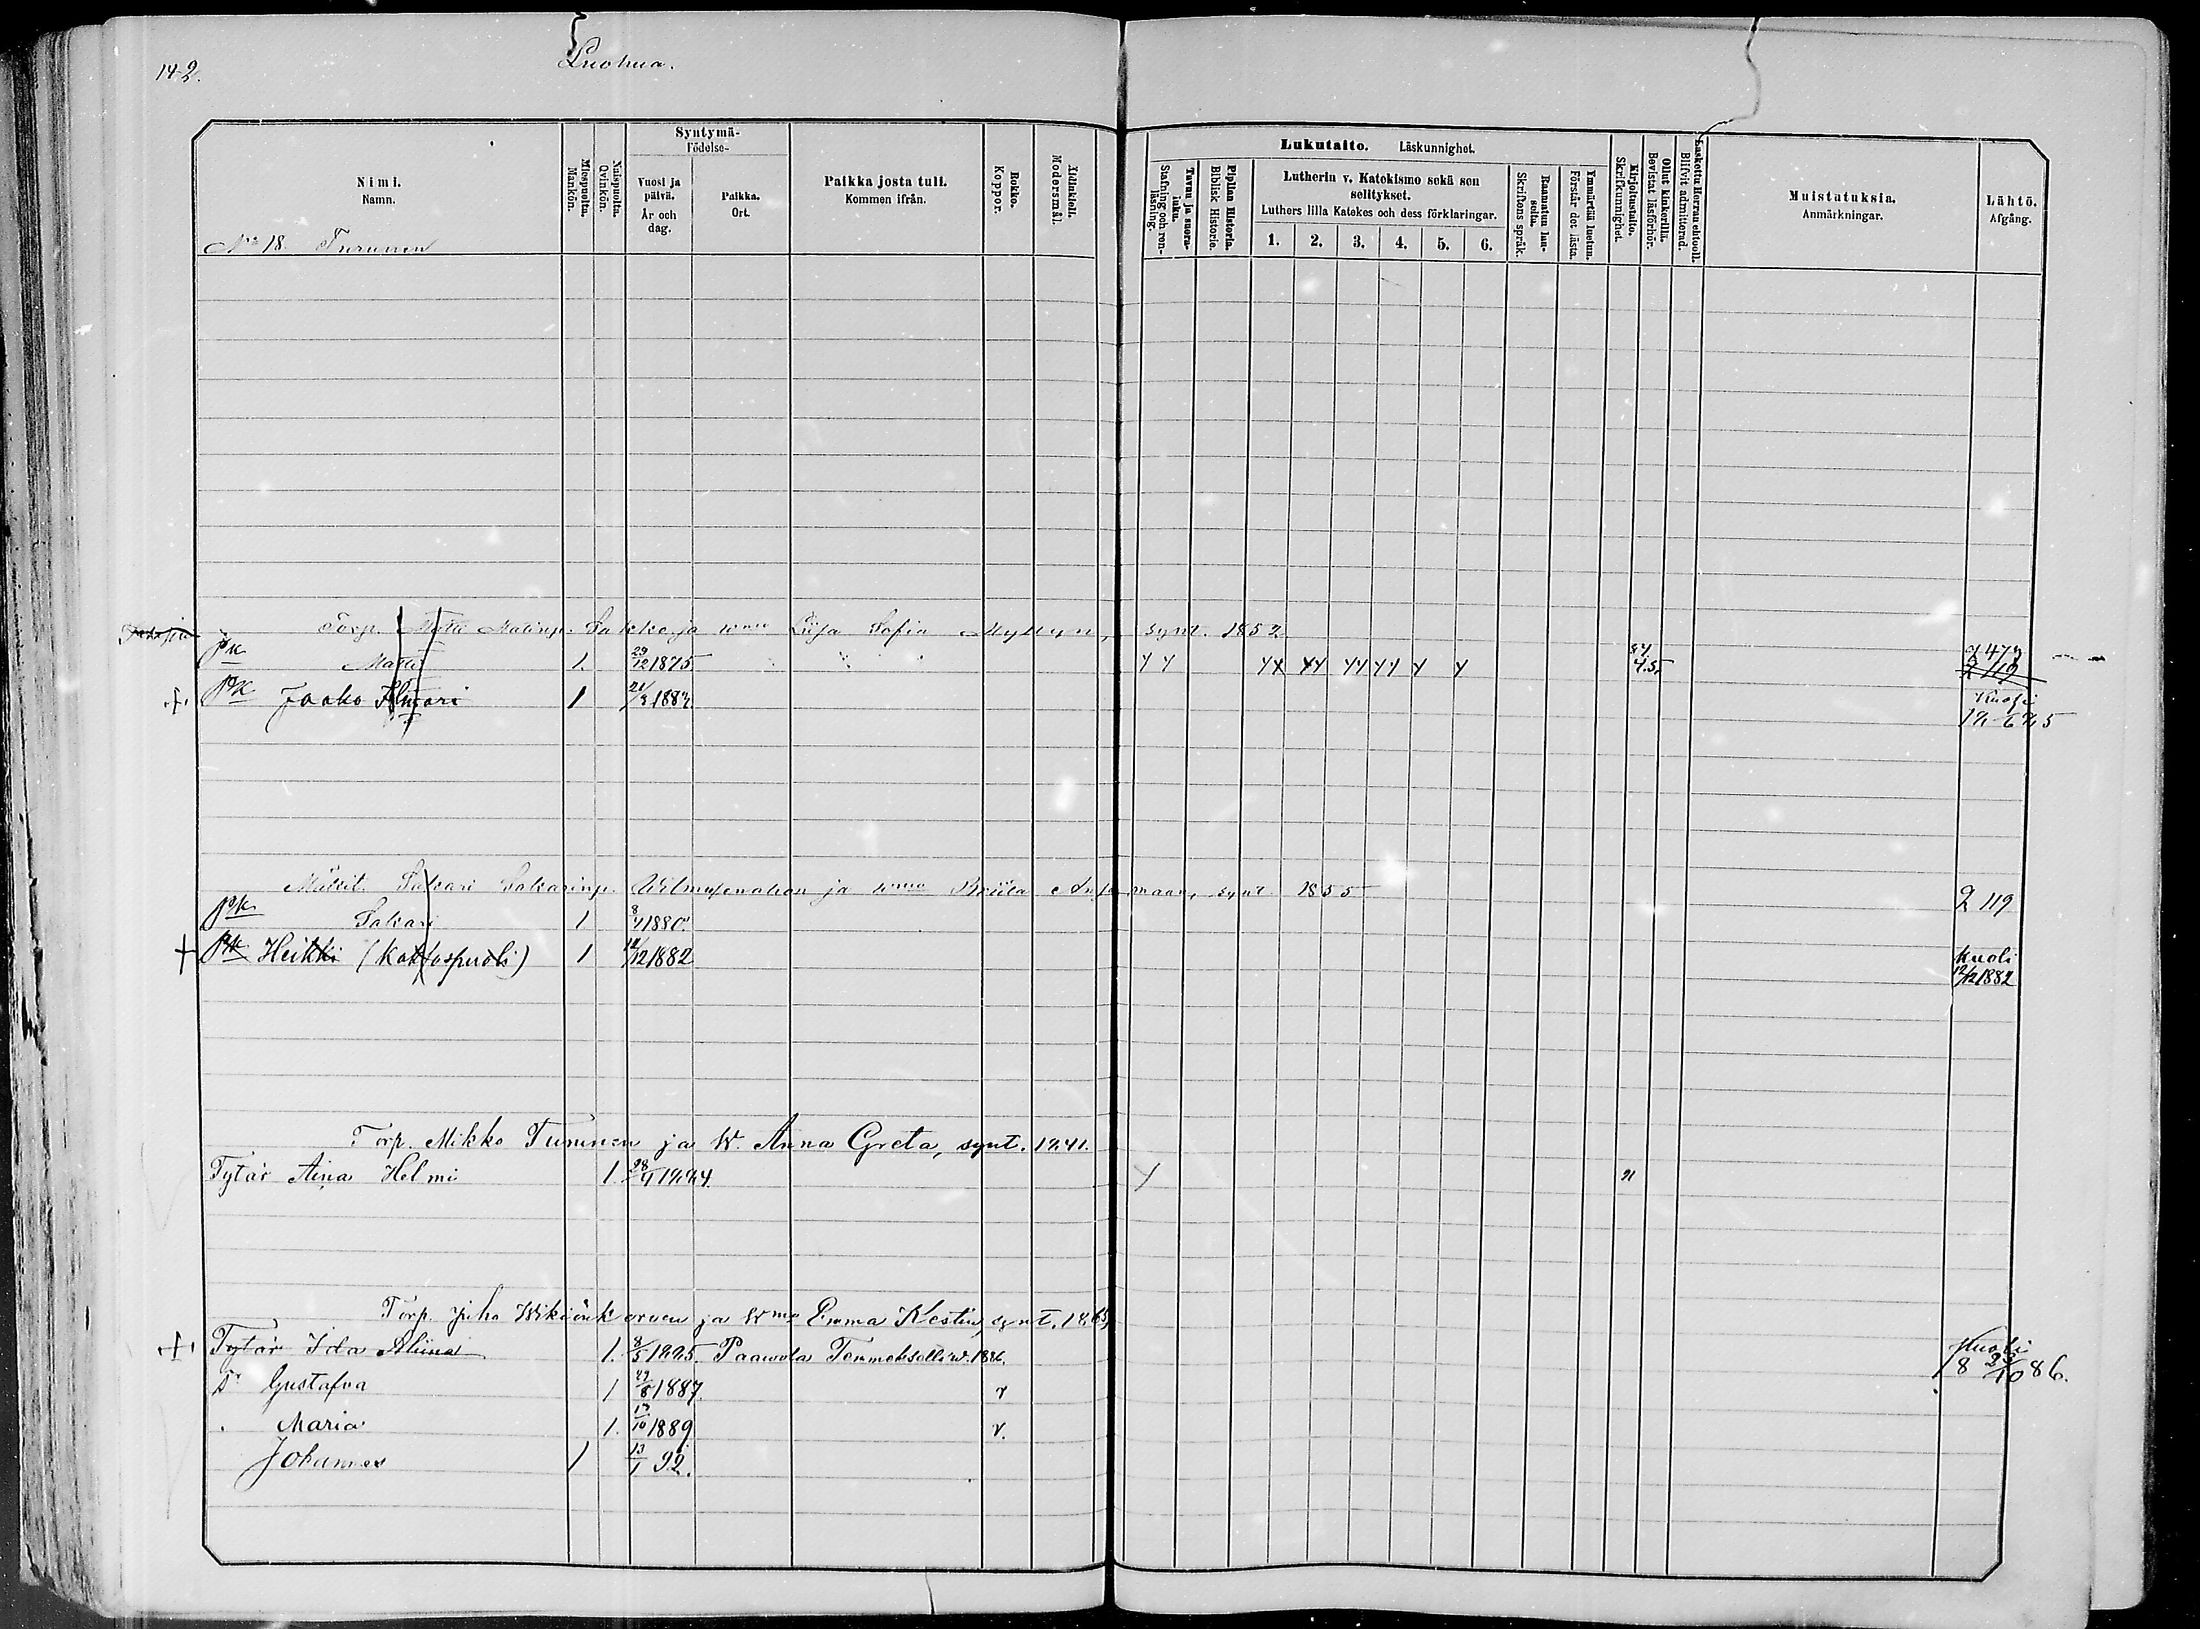 142.
Luohua.
Nimi.
Namn.
Miespuolta.
Mankön.
Naispuolta.
Qvinkön.
Syntymä-
Födelse-
Vuosi ja päivä.
År och dag.
Paikka.
Ort.
Paikka josta tuli.
Kommen ifrån.
Rokko.
Koppor.
Äidinkieli.
Modersmål.
Lukutaito. Läskunnighet.
Tavau ja suora-luku.
Stafning och ren-läsning.
Piplian Historia.
Biblisk Historie.
Lutherin v. Katekismo sekä sen selitykset.
Luthers lilla Katekes och dess förklaringar.
1. 2. 3. 4. 5. 6.
Raamatun lau-seita.
Skriftens språk.
Ymmärtää luetun.
Förstår det lästa.
Kirjoitustaito.
Skrifkunnighet.
Ollut kinkerillä.
Bevistat läsförhör.
Laskettu Herran ehtooll.
Blifvit admitterad.
Muistatuksia.
Anmärkningar.
Lähtö.
Afgång.
No 18. Turunen
Torp. Matti Matinp. Sakko ja wmo Liisa Sofia synt. 1852
Pk Matti 1. 29/12 1875 2 119
+ Pk Jaako Ilmari 1 1883 Kuoli
Mäkit. Sakari Sakarinp. ja wmo Briita synt 1855
Pk Sakari 1 8/7 1880 2 119
+ Pk Heikki (Kaksospuoli) 1 12/12 1882 Kuoli
12/12 1882
Torp. Mikko Turunen ja W. Anna Greta, synt. 1841.
Tytär Aina Helmi 1. 28/1 1884
Torp. Juho ja Wmo Emma Kestin, synt. 1865
+ Tytär Ida Aliina 1. 8/5 1885. Paawola Temmekselli w. 1886. Kuoli
18 23/10 86.
Do Gustafva 1 29/8 1887. v
Maria 1. 13/10 1889 v.
Johannes 1 13/1 92.